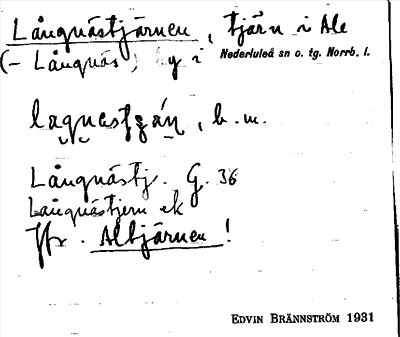 Långnästjärnen, tjärn i Ale
(- Långnäs) by i Nederluleå sn o. tg. Norrb. l.
, b. m.
Långnästj. G. 36
Långnästjern ek
Jfr. Altjärnen!
EDVIN BRÄNNSTRÖM 1931